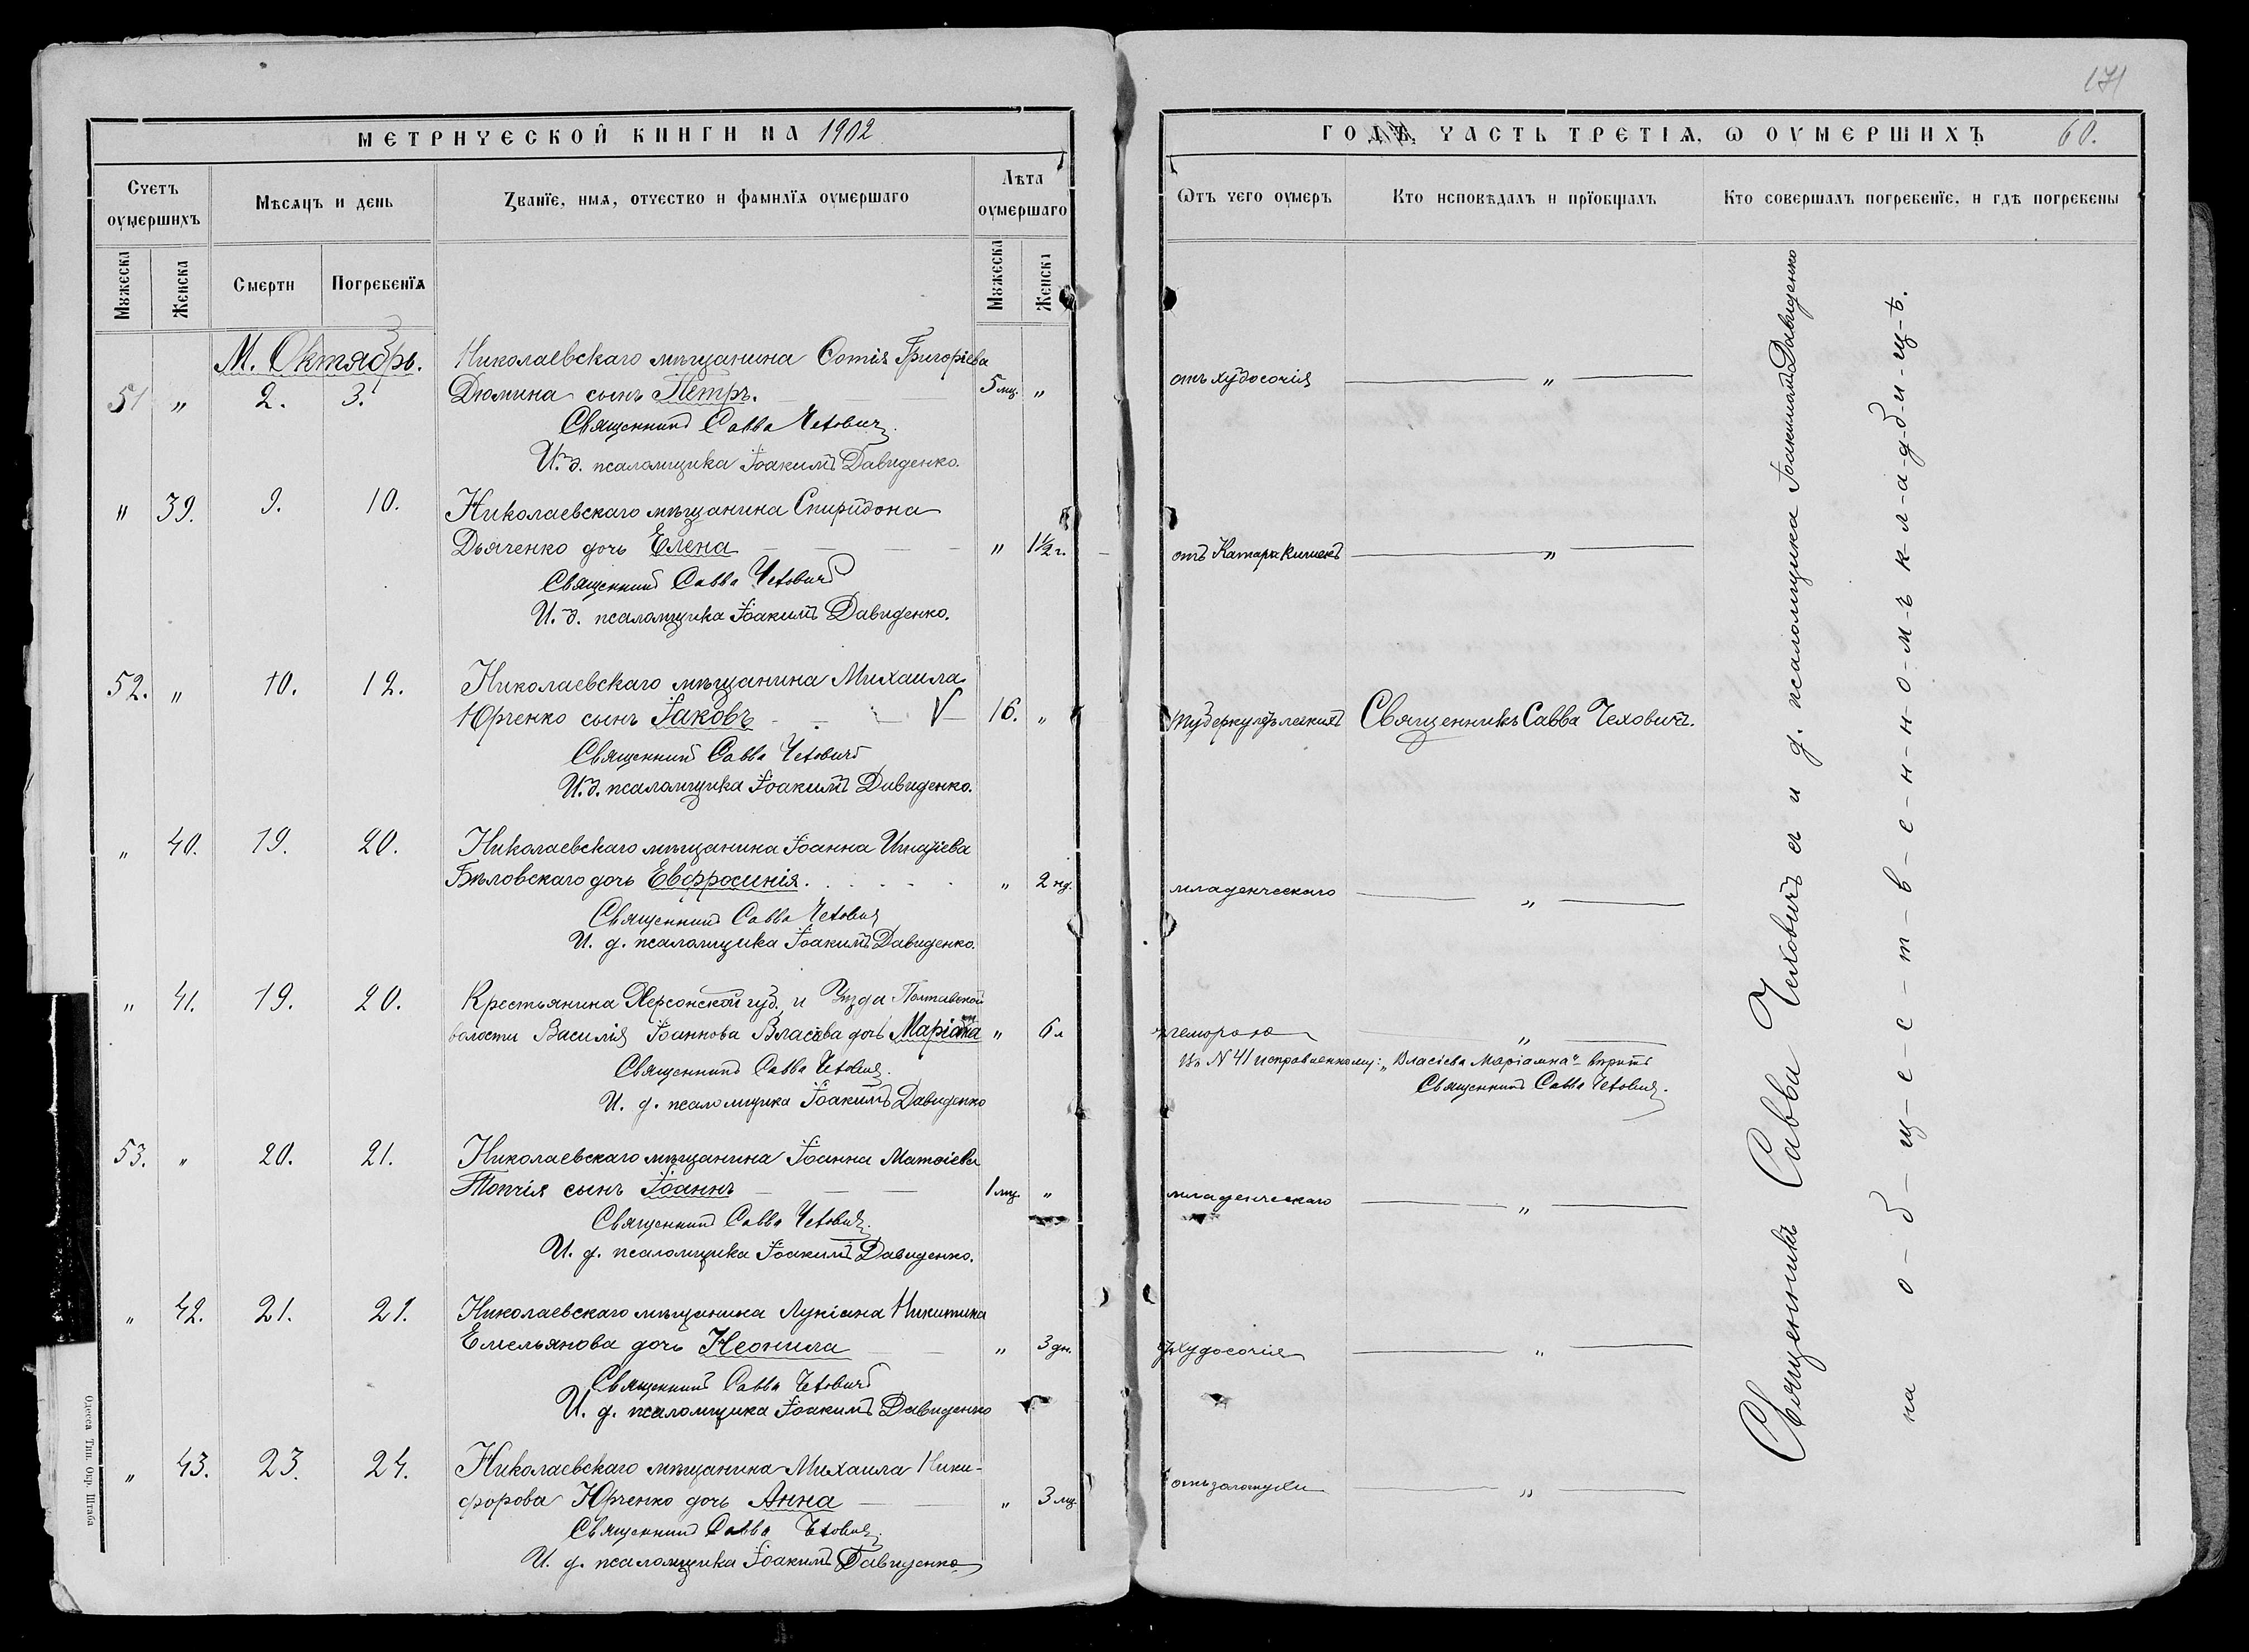 171
МЕТРИЧЕСКОЙ КНИГИ НА 1902
Счетъ оумершихъ
Мѣсяцъ и день
Званїе, имя, отчество и фамилїя оумершаго
Лѣта оумершаго
Мꙋжеска
Женска
Смерти
Погребенїя
Мꙋжеска
Женска
М. Октябрь.
51 " 2. 3. Николаевскаго мѣщанина Фотія Григоріева
Дюмина сынъ Петръ. 5 мц. "
Священникъ Савва Чеховичъ.
И. д. псаломщика Іоакимъ Давиденко.
" 39. 9. 10. Николаевскаго мѣщанина Спиридона
Дьяченко дочь Елена " 1½ г.
Священникъ Савва Чеховичъ
И. д. псаломщика Іоакимъ Давиденко.
52. " 10. 12. Николаевскаго мѣщанина Михаила
Юрченко сынъ Іаковъ V 16. "
Священникъ Савва Чеховичъ
И. д. псаломщика Іоакимъ Давиденко.
" 40. 19. 20. Николаевскаго мѣщанина Іоанна
Бѣловскаго дочь Евфросинія. " 2 нд.
Священникъ Савва Чеховичъ
И. д. псаломщика Іоакимъ Давиденко.
" 41. 19. 20. Крестьянина Херсонской губ. и Уѣзда Полтавской
волости Василія Іоаннова дочь " 6 л
Священникъ Савва Чеховичъ.
И. д. псаломщика Іоакимъ Давиденко
53. " 20. 21. Николаевскаго мѣщанина Іоанна Матѳіева
Топчія сынъ Іоаннъ 1 мц. "
Священникъ Савва Чеховичъ.
И. д. псаломщика Іоакимъ Давиденко.
" 42. 21. 21. Николаевскаго мѣщанина Лукіана Никитина
Емельянова дочь Неонила " 3 дн.
Священникъ Савва Чеховичъ
И. д. псаломщика Іоакимъ Давиденко
" 43. 23. 24. Николаевскаго мѣщанина Михаила Ники-
форова Юрченко дочь Анна " 3 мц.
Священникъ Савва Чеховичъ.
И. д. псаломщика Іоакимъ Давиденко
Одесса Тип. Окр. Штаба
ГОДЪ, ЧАСТЬ ТРЕТІЯ, Ѡ ОУМЕРШИХЪ 60.
Ѿтъ чего оумеръ
Кто исповѣдалъ и прїобщалъ
Кто совершалъ погребенїе, и гдѣ погребены
отъ худосочія "
отъ Катара кишекъ "
туберкулёзъ легкихъ Священникъ Савва Чеховичъ.
младенческаго "
"
Въ N 41 исправленному: „Власіева Маріамна" вѣрить
Священникъ Савва Чеховичъ.
младенческаго "
худосочія "
отъ золотухи "
Священникъ Савва Чеховичъ съ и д. псаломщика Іоакимомъ Давиденко
на о-б-щ-е-с-т-в-е-н-н-о-м-ъ к-л-а-д-б-и-щ-ѣ.